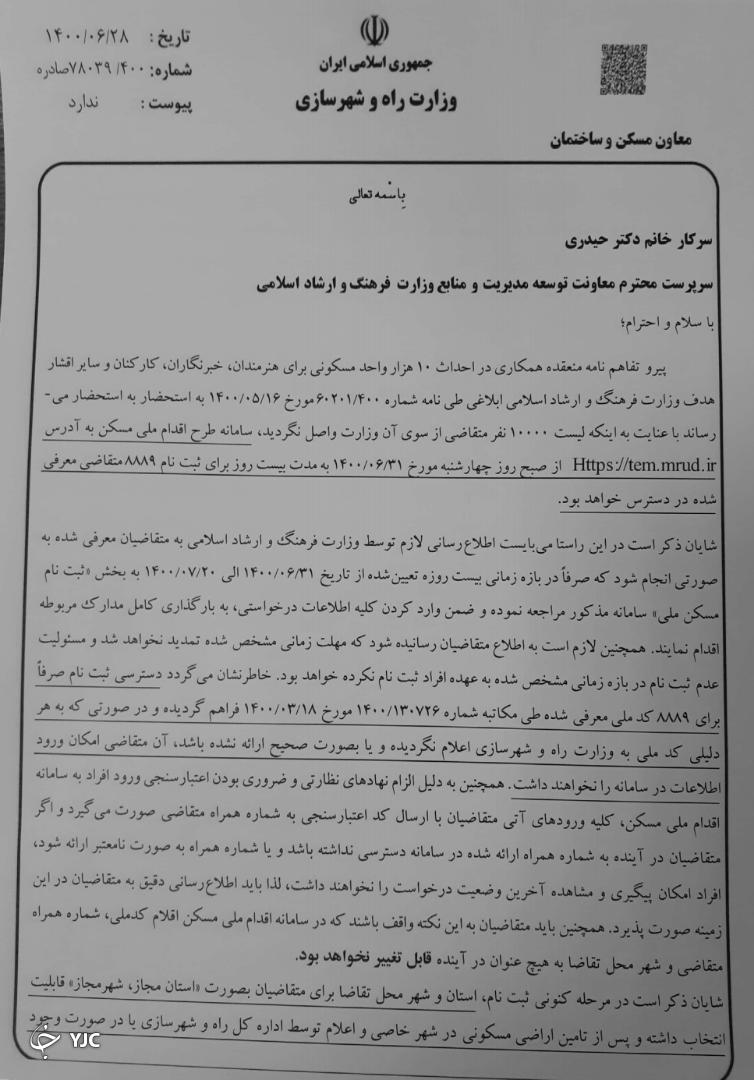 جمهوری اسلامی ایران
وزارت راه و شهرسازی
معاون مسکن و ساختمان
تاریخ : ۱۴۰۰/۰۶/۲۸
شماره: ۷۸۰۳۹ /۴۰۰صادره
پیوست : ندارد
باسمه تعالی
سرکار خانم دکتر حیدری
سرپرست محترم معاونت توسعه مدیریت و منابع وزارت فرهنگ و ارشاد اسلامی
با سلام و احترام؛
پیرو تفاهم نامه منعقده همکاری در احداث ۱۰ هزار واحد مسکونی برای هنرمندان، خبرنگاران، کارکنان و سایر اقشار
هدف وزارت فرهنگ و ارشاد اسلامی ابلاغی طی نامه شماره ۶۰۲۰۱/۴۰۰مورخ ۱۴۰۰/۰۵/۱۶ به استحضار به استحضار می-
رساند با عنایت به اینکه لیست ۱۰۰۰۰ نفر متقاضی از سوی آن وزارت واصل نگردید، سامانه طرح اقدام ملی مسکن به آدرس
Https://tem.mrud.ir از صبح روز چهارشنبه مورخ ۱۴۰۰/۰۶/۳۱ به مدت بیست روز برای ثبت نام ۸۸۸۹ متقاضی معرفی
شده در دسترس خواهد بود.
شایان ذکر است در این راستا می‌بایست اطلاع‌رسانی لازم توسط وزارت فرهنگ و ارشاد اسلامی به متقاضیان معرفی شده به
صورتی انجام شود که صرفاً در بازه زمانی بیست روزه تعیین‌شده از تاریخ ۱۴۰۰/۰۶/۳۱ الی ۱۴۰۰/۰۷/۲۰ به بخش «ثبت نام
مسکن ملی» سامانه مذکور مراجعه نموده و ضمن وارد کردن کلیه اطلاعات درخواستی، به بارگذاری کامل مدارک مربوطه
اقدام نمایند. همچنین لازم است به اطلاع متقاضیان رسانیده شود که مهلت زمانی مشخص شده تمدید نخواهد شد و مسئولیت
عدم ثبت نام در بازه زمانی مشخص شده به عهده افراد ثبت نام نکرده خواهد بود. خاطرنشان می‌گردد دسترسی ثبت نام صرفاً
برای ۸۸۸۹ کد ملی معرفی شده طی مکاتبه شماره ۱۴۰۰/۱۳۰۷۲۶ مورخ ۱۴۰۰/۰۳/۱۸ فراهم گردیده و در صورتی که به هر
دلیلی کد ملی به وزارت راه و شهرسازی اعلام نگردیده و یا بصورت صحیح ارائه نشده باشد، آن متقاضی امکان ورود
اطلاعات در سامانه را نخواهند داشت. همچنین به دلیل الزام نهادهای نظارتی و ضروری بودن اعتبارسنجی ورود افراد به سامانه
اقدام ملی مسکن، کلیه ورودهای آتی متقاضیان با ارسال کد اعتبارسنجی به شماره همراه متقاضی صورت می‌گیرد و اگر
متقاضیان در آینده به شماره همراه ارائه شده در سامانه دسترسی نداشته باشد و یا شماره همراه به صورت نامعتبر ارائه شود،
افراد امکان پیگیری و مشاهده آخرین وضعیت درخواست را نخواهند داشت، لذا باید اطلاع‌رسانی دقیق به متقاضیان در این
زمینه صورت پذیرد. همچنین باید متقاضیان به این نکته واقف باشند که در سامانه اقدام ملی مسکن اقلام کدملی، شماره همراه
متقاضی و شهر محل تقاضا به هیچ عنوان در آینده قابل تغییر نخواهد بود.
شایان ذکر است در مرحله کنونی ثبت نام، استان و شهر محل تقاضا برای متقاضیان بصورت «استان مجاز، شهرمجاز» قابلیت
انتخاب داشته و پس از تامین اراضی مسکونی در شهر خاصی و اعلام توسط اداره کل راه و شهرسازی یا در صورت وجود
YJC